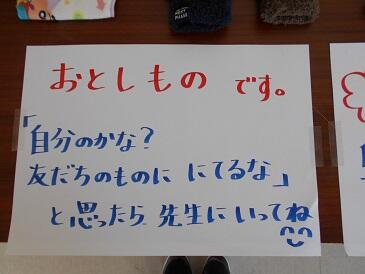 おとしもの です。
「自分のかな?
友だちのものに にてるな」
と思ったら 先生にいってね